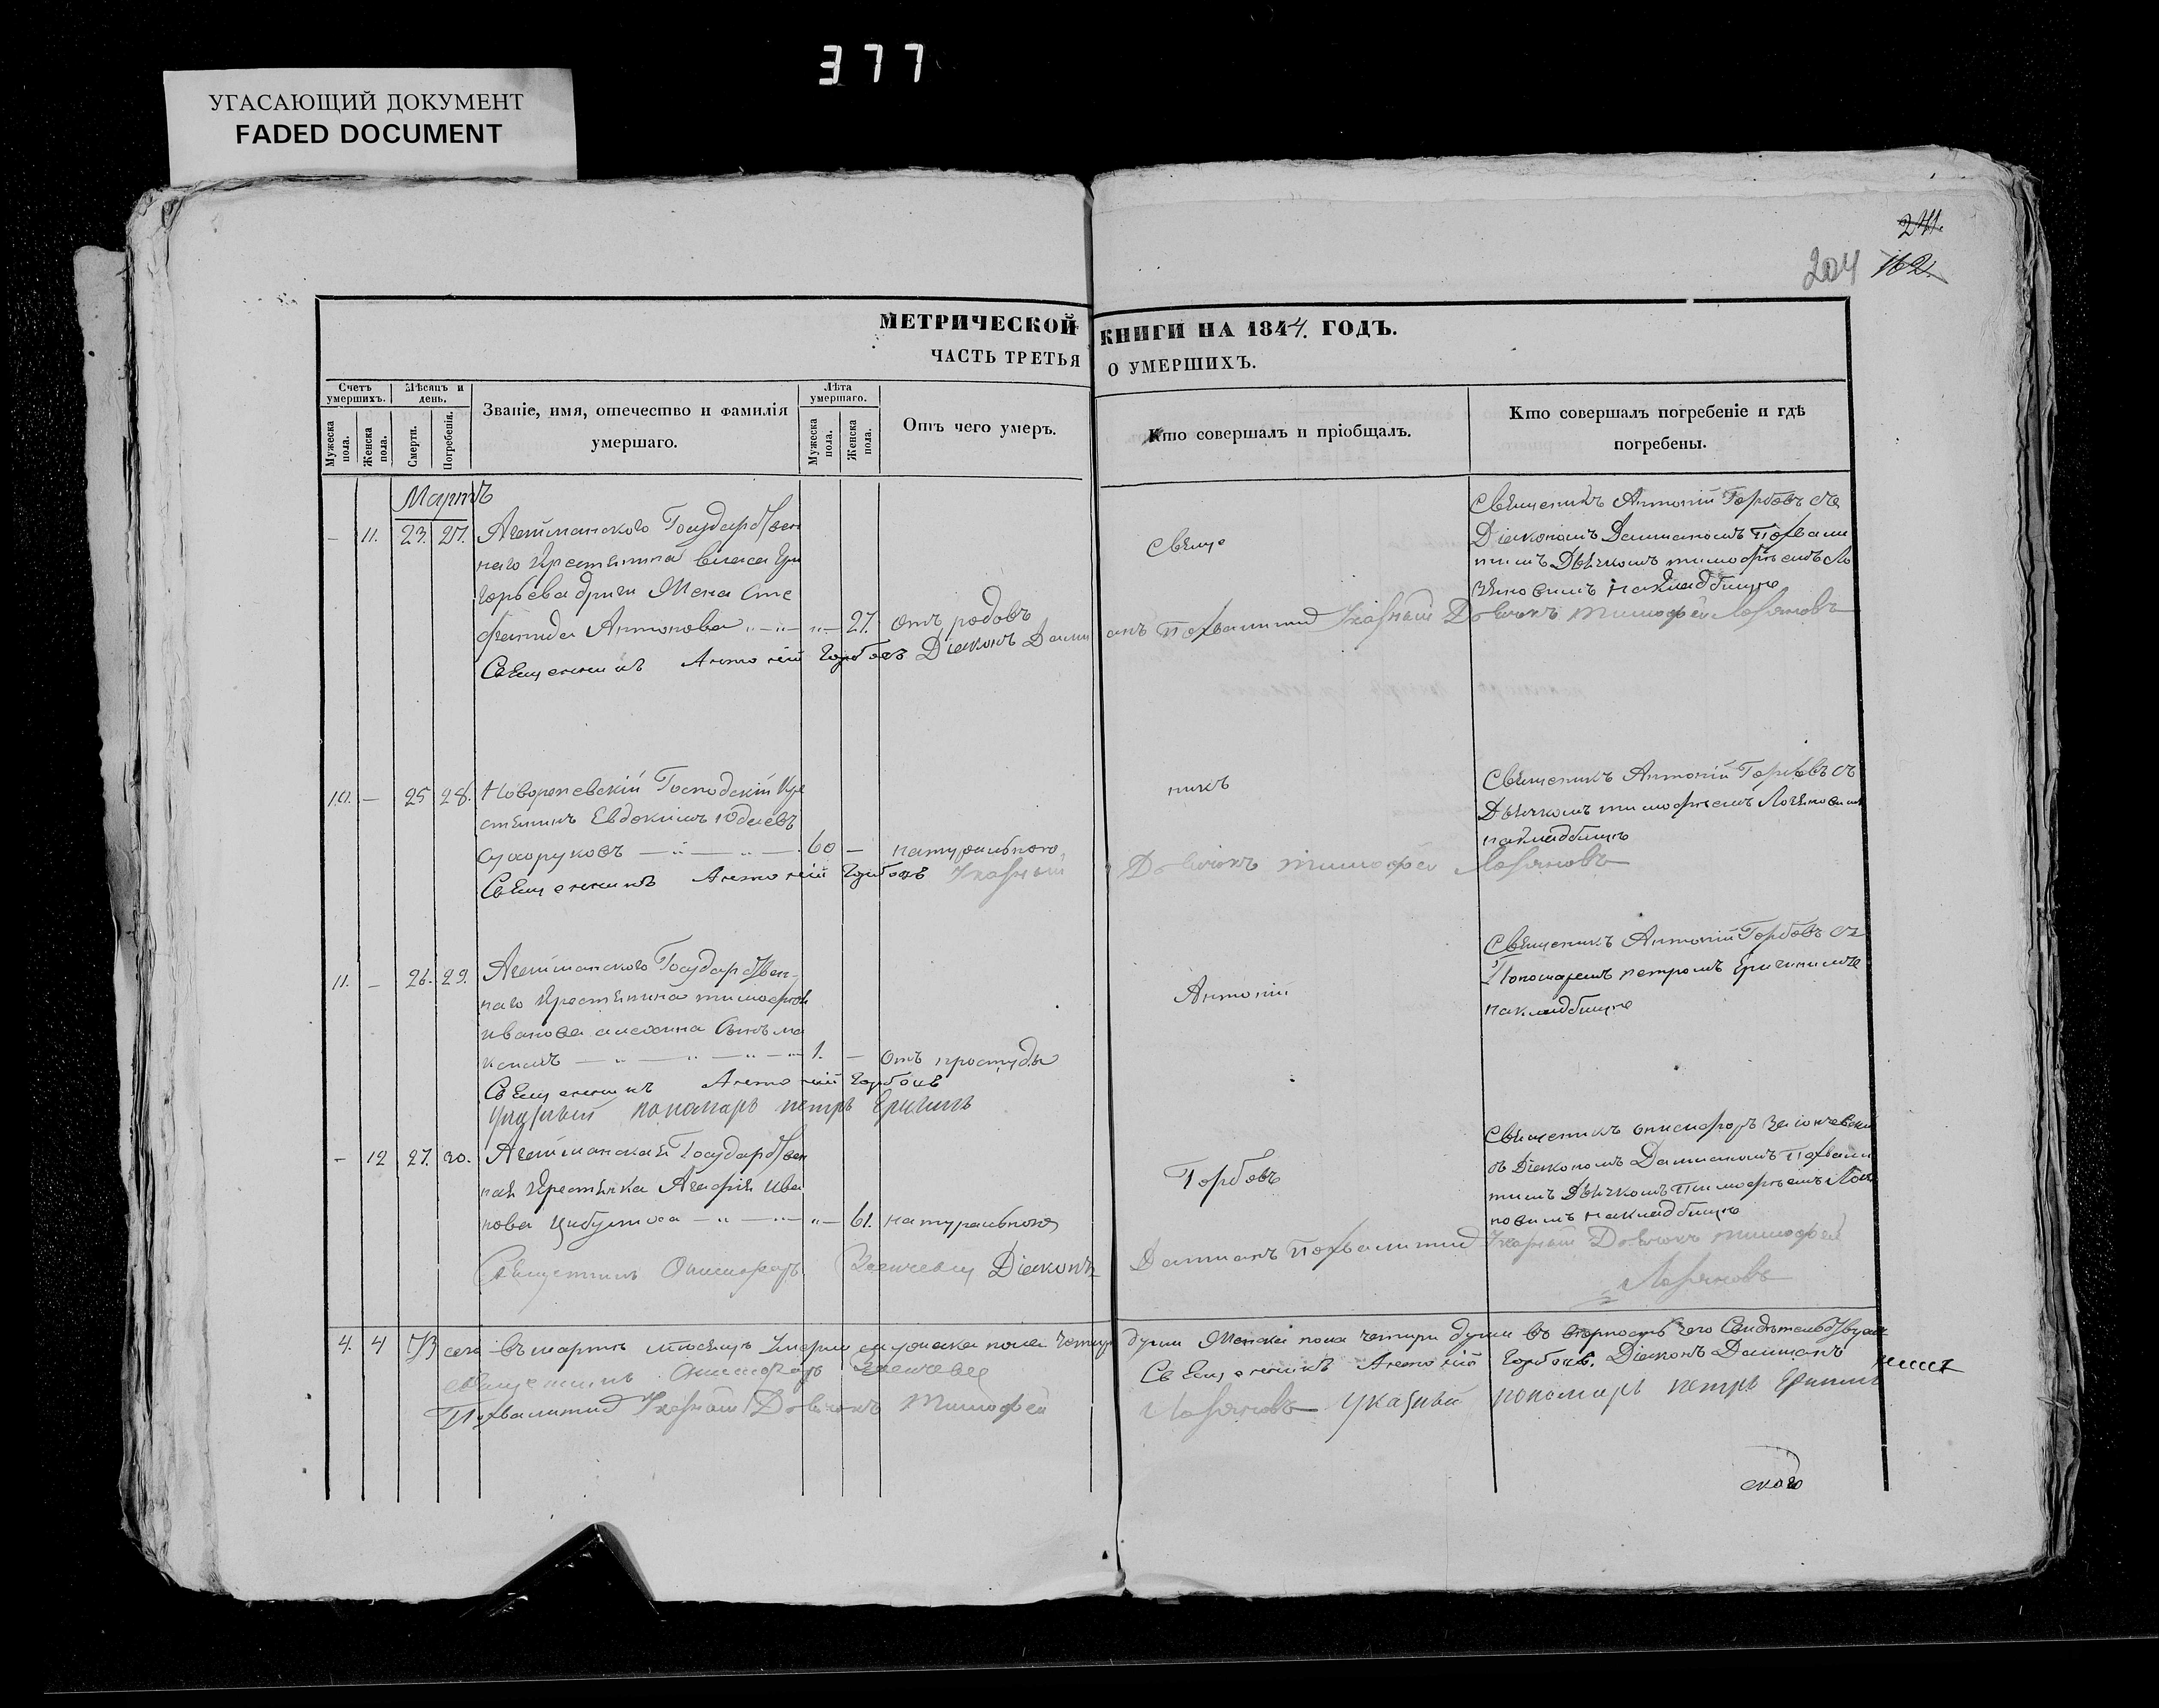 377
УГАСАЮЩИЙ ДОКУМЕНТ
FADED DOCUMENT
241.
204 162.
МЕТРИЧЕСКОЙ КНИГИ НА 1844. ГОДЪ.
ЧАСТЬ ТРЕТЬЯ О УМЕРШИХЪ.
Счетъ умершихъ.
Мужеска пола.
Женска пола.
Мѣсяцъ и день.
Смерти.
Погребенія.
Званіе, имя, отечество и фамилія
умершаго.
Лѣта умершаго.
Мужеска пола.
Женска пола.
Отъ чего умеръ.
Кто совершалъ и пріобщалъ.
Кто совершалъ погребеніе и гдѣ
погребены.
Мартъ
– 11. 23. 27. Ачейманского Государствен
наго Крестьянина власа Гри
горьева Жена Сте
фанида Антонова 27. отъ родовъ
Священникъ Антоній Горбовъ Діаконъ Даміанъ Похвалитид Указный Дьячокъ Тимофей Логиновъ
Свяще
Священикъ Антоній Горбовъ съ
Діакономъ Даміаномъ Похвали
тимъ Дьячкомъ тимофѣемъ Ло
гиновимъ накладбищѣ
10. – 25 28. Новорепевскій Господскій Кре
стянинъ Евдокимъ
сухоруковъ 60 – натурально
Священникъ Антоній Горбовъ Указный Дьячокъ Тимофей Логиновъ
никъ
Священикъ Антоній Горбовъ съ
Дьячкомъ тимофѣемъ Логиновимъ
накладбищѣ
11. – 26. 29. Ачейманского Государствен
наго Крестянина тимофея
иванова алехина Сынъ ма
ксимъ 1. – отъ простуды
Священникъ Антоній Горбовъ
указный пономарь петръ Еричинъ
Антоній
Священикъ Антоній Горбовъ съ
Пономаремъ петромъ Еричинимъ
накладбищѣ
– 12 27. 30. Ачейманская Государствен
ная Крестянка Агафія Ива
нова 61. натурально
Священникъ Діаконъ Даміанъ Похвалитид Указный Дьячокъ тимофей
Логиновъ
Горбовъ
Священикъ
съ Діакономъ Даміаномъ Похвали
тимъ Дьячкомъ Тимофѣемъ Логи
новимъ накладбищѣ
4. 4 Всего въ мартѣ мѣсяцѣ умерло мужеска пола четири души Женска пола четири души въ вѣрность чего Свидѣтельствуемъ
священникъ Священникъ Антоній Горбовъ. Діаконъ Даміанъ
Похвалитид Указный Дьячокъ Тимофей Логиновъ указный пономарь петръ Еричинъ
ского